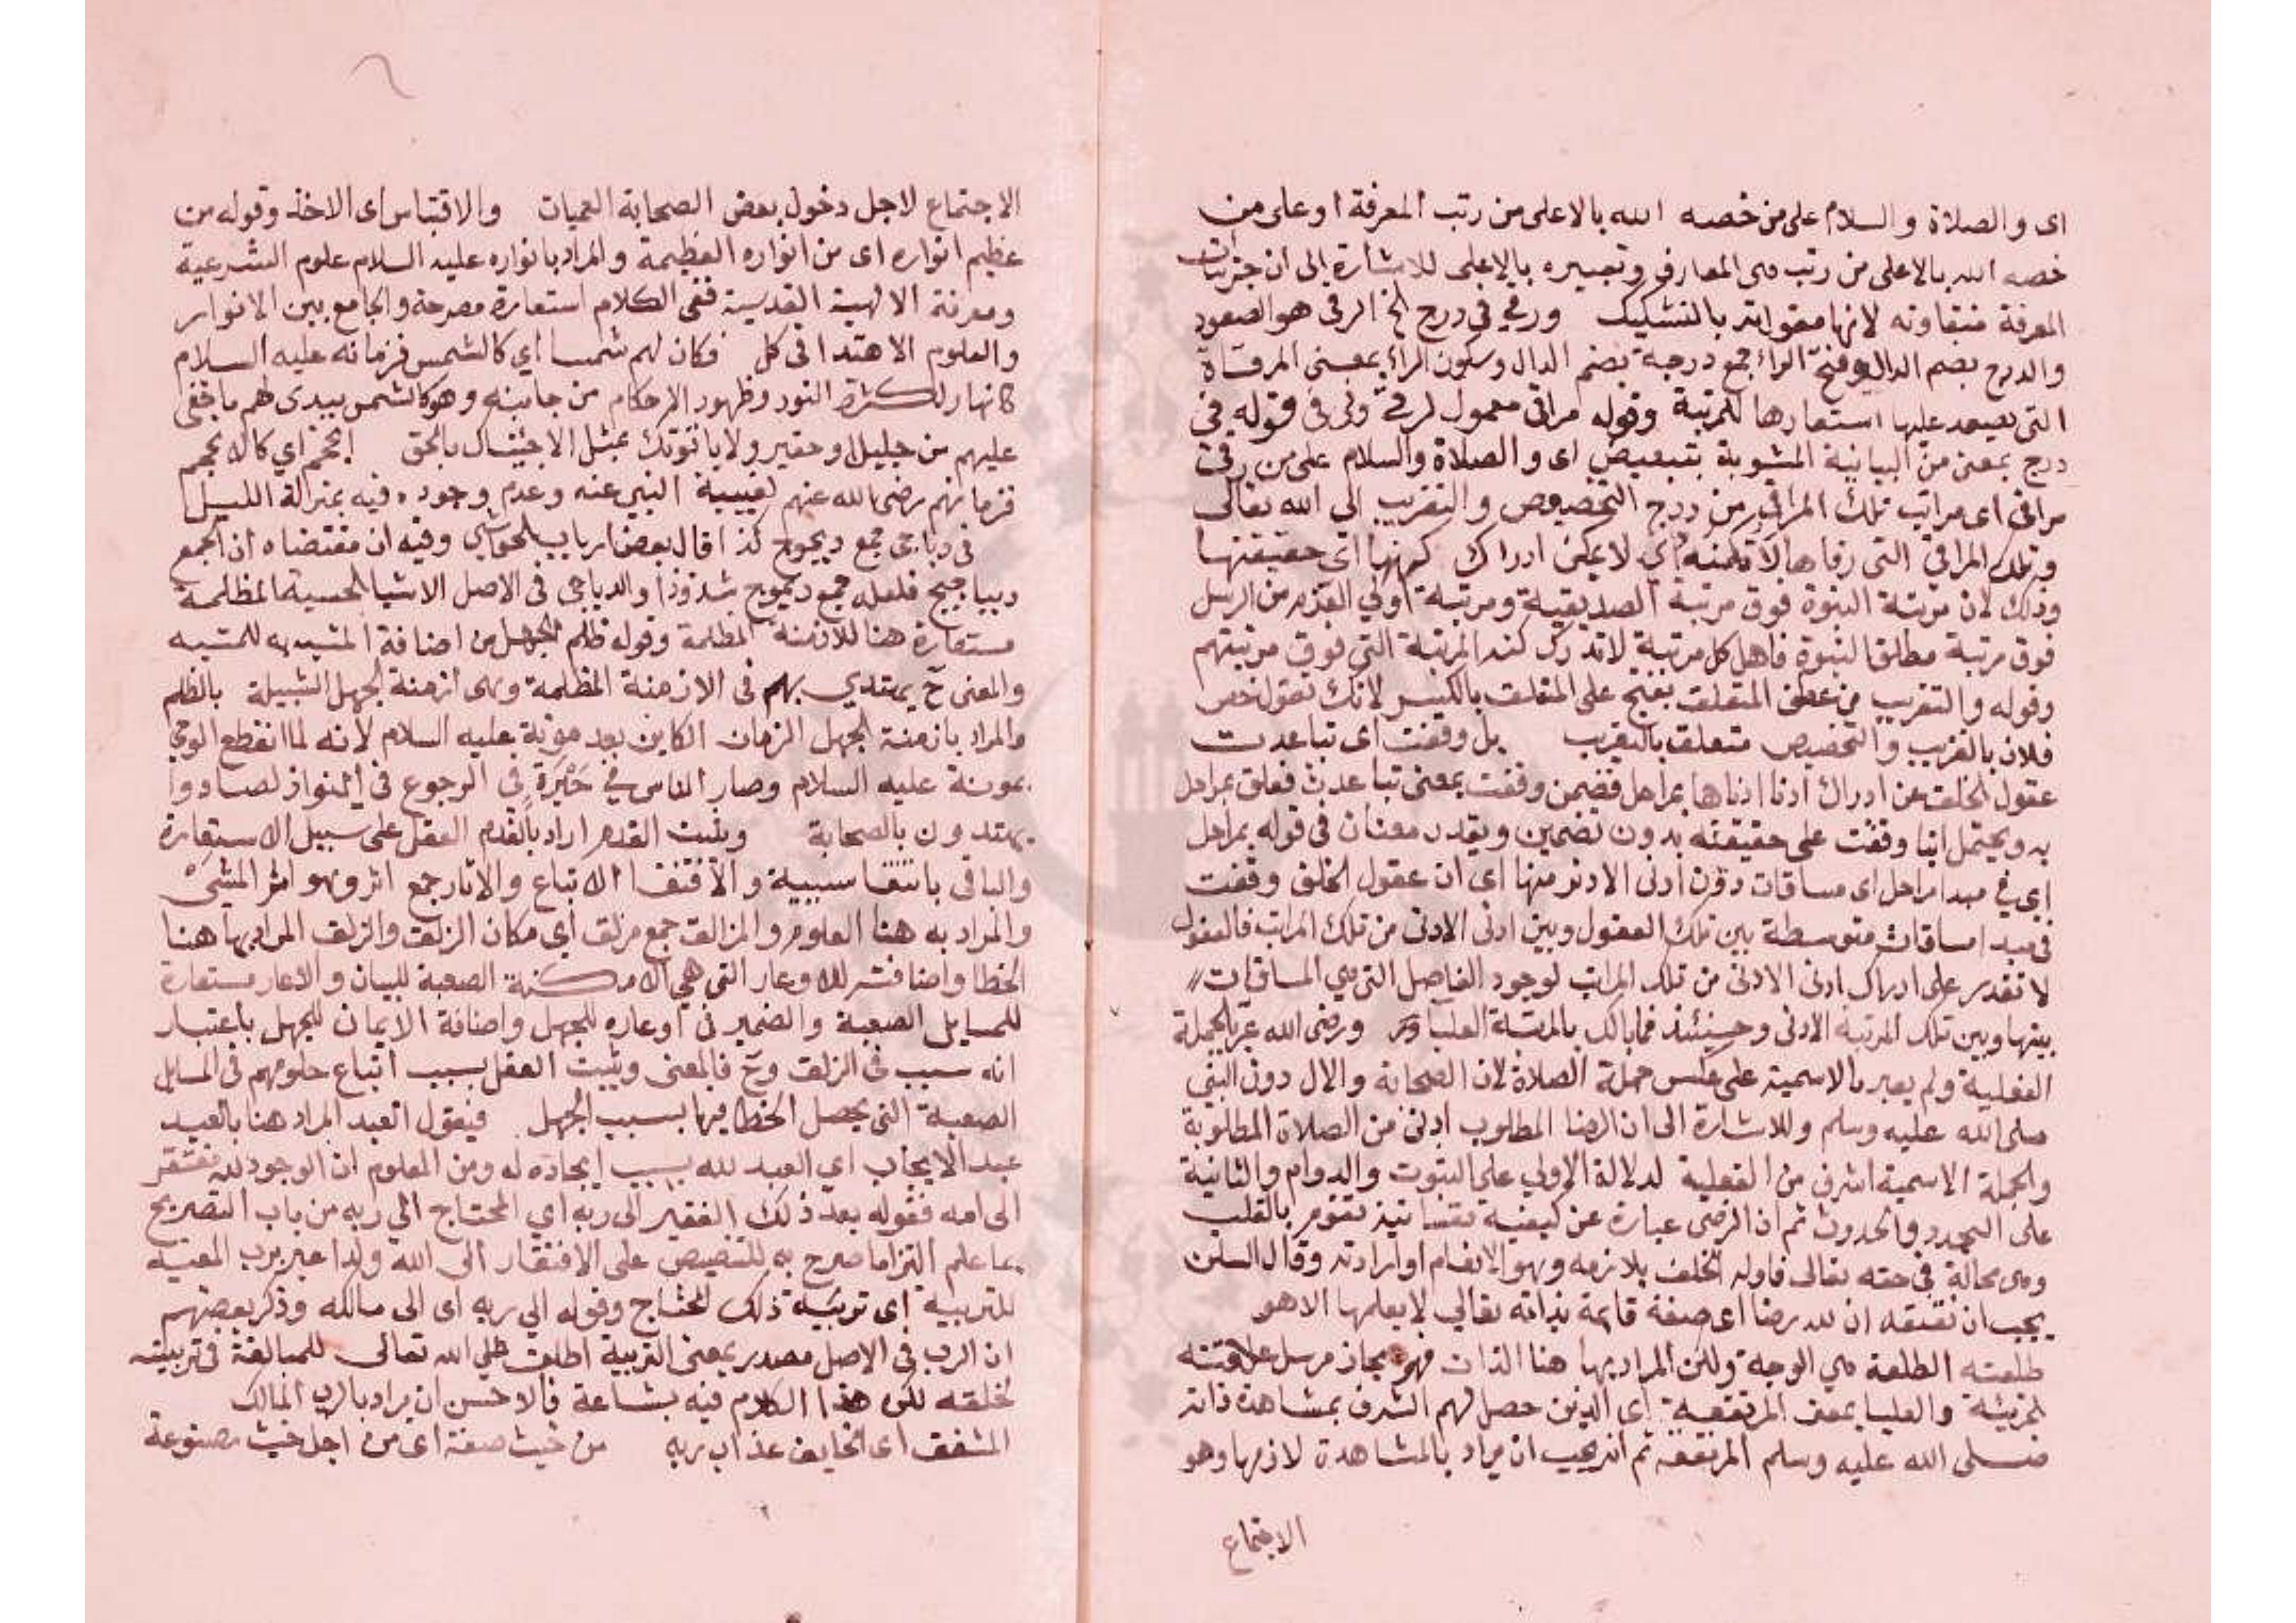 اى والصلاة والسلام على من خصه الله بالاعلى من رتب المعرفة او على من
خصه الله بالاعلى من رتب هى المعارف وتعبيره بالاعلى للاشارة الى ان جزئيات
المعرفة متفاوته لانها مقولة بالتشكيك ورقي في درج الخ الرقى هو الصعود
والدرج بضم الدال وفتح الراء جمع درجة بضم الدال وسكون الراء بمعنى المرقاة
التى يصعد عليها استعارها للمرتبة وقوله مراقى معمول لرقي وفى فى قوله فى
درج بمعنى من البيانية المشوبة بتبعيض اى والصلاة والسلام على من رقى
مراقى اى مراتب تلك المراقى من درج التخصيص والتقريب الى الله تعالى
وتلك المراقي التى رقاها لا تكتنه اي لا يمكن ادراك كنهها اى حقيقتها
وذلك لان مرتبة النبوة فوق مرتبة الصديقية ومرتبة اولي العزم من الرسل
فوق مرتبة مطلق النبوة فاهل كل مرتبة لا تدرك كنه المرتبة التي فوق مرتبتهم
وقوله والتقريب من عطف المتعلق بفتح على المتعلق بالكسر لانك تقول خص
فلان بالقرب والتخصيص متعلق بالتقريب بل وقفت اى تباعدت
عقول الخلق عن ادراك ادنا ادناها بمراحل فضمن وقفت بمعنى تباعدت فعلق بمراحل
به ويحتمل انها وقفت على حقيقته بدون تضمين ويقدر مضافان فى قوله بمراحل
اي في مبدا مراحل اى مسافات دون ادنى الادنى منها اى ان عقول الخلق وقفت
فى مبدا مسافات متوسطة بين تلك العقول وبين ادنى الادنى من تلك المراتب فالعقول
لا تقدر على ادراك ادنى الادنى من تلك المراتب لوجود الفاصل التى هي المسافات
بينها وبين تلك المرتبة الادنى وحينئذ فما بالك بالمرتبة العليا ورضى الله عبر بالجملة
الفعلية ولم يعبر بالاسمية على عكس جملة الصلاة لان الصحابة والال دون النبي
صلى الله عليه وسلم وللاشارة الى ان الرضا المطلوب ادنى من الصلاة المطلوبة
والجملة الاسمية اشرف من الفعلية لدلالة الاولي على الثبوت والدوام والثانية
على التجدد والحدوث ثم ان الرضى عبارة عن كيفية نفسانية تقوم بالقلب
وهى محالة فى حقه تعالى فاوله الخلف بلازمه وهو الانعام او ارادته وقال السلف
يجب ان نعتقد ان لله رضا اى صفة قايمة بذاته تعالي لا يعلمها الا هو
طلعته الطلعة هي الوجه ولكن المراد بها هنا الذات فهو مجاز مرسل علاقته
الجزئية والعليا بمعنى المرتفعة اى الذين حصل لهم الشرف بمشاهدة ذاته
صلى الله عليه وسلم المرتفعة ثم انه يجب ان يراد بالمشاهدة لازمها وهو
الاجتماع
الاجتماع لاجل دخول بعض الصحابة العميان والاقتباس اى الاخذ وقوله من
عظيم انواره اى من انواره العظيمة والمراد بانواره عليه السلام علوم الشرعية
ومعرفة الالهية القدسية ففى الكلام استعارة مصرحة والجامع بين الانوار
والعلوم الاهتدا فى كل فكان لهم شمسا اي كالشمس فزمانه عليه السلام
كانهار لكثرة النور وظهور الاحكام من جانبه وهو كالشمس يبدى لهم ما خفى
عليهم من جليل او حقير ولا ياتونك بمثل الا جئناك بالحق انجم اي كالانجم
فزمانهم رضى الله عنهم لغيبة النبي عنه وعدم وجوده فيه بمنزلة الليل
فى دياجى جمع ديجوج كذا قال بعض ارباب الحواشي وفيه ان مقتضاه ان الجمع
ديباجيج فلعله جمع ديجوج شذوذا والدياجى فى الاصل الاشيا الحسية المظلمة
مستعارة هنا للازمنة المظلمة وقوله ظلم الجهل من اضافة المشبه به للمشبه
والمعنى ح يهتدي بهم فى الازمنة المظلمة وهى ازمنة الجهل الشبيهة بالظلم
والمراد بازمنة الجهل الزمان الكاين بعد موته عليه السلام لانه لما انقطع الوحي
بموته عليه السلام وصار الناس في حيرة فى الرجوع فى النوازل صاروا
يهتدون بالصحابة ويثبت القدم اراد بالقدم العقل على سبيل الاستعارة
والبا فى باقتفا سببية والاقتفا الاتباع والاثار جمع اثر وهو اثر المشي
والمراد به هنا العلوم والمزالق جمع مزلق اي مكان الزلق والزلق المراد بها هنا
الخطا واضافته للاوعار التى هي الامكنة الصعبة للبيان والاوعار مستعارة
للمسايل الصعبة والضمير فى اوعاره للجهل واضافة الايمان للجهل باعتبار
انه سبب فى الزلق وح فالمعنى ويثبت العقل بسبب اتباع علومهم فى المسايل
الصعبة التى يحصل الخطا فيها بسبب الجهل فيقول العبد المراد هنا بالعبد
عبد الايجاب اي العبد لله بسبب ايجاده له ومن المعلوم ان الموجود لله مفتقر
الى فقوله بعد ذلك الفقير الى ربه اي المحتاج الي ربه من باب التصريح
بما علم التزاما صرح به للتنصيص على الافتقار الى الله ولذا عبر برب
للتربية اى تربية ذلك المحتاج وقوله الي ربه اى الى مالكه وذكر بعضهم
ان الرب فى الاصل مصدر بمعنى التربية اطلق على الله تعالى للمبالغة فى تربيته
لخلقه لكن هذا الكلام فيه بشاعة فالاحسن ان يراد بالرب المالك
المشفق اى الخايف عذاب ربه من خبث صفته اى من اجل خبث مصنوعة